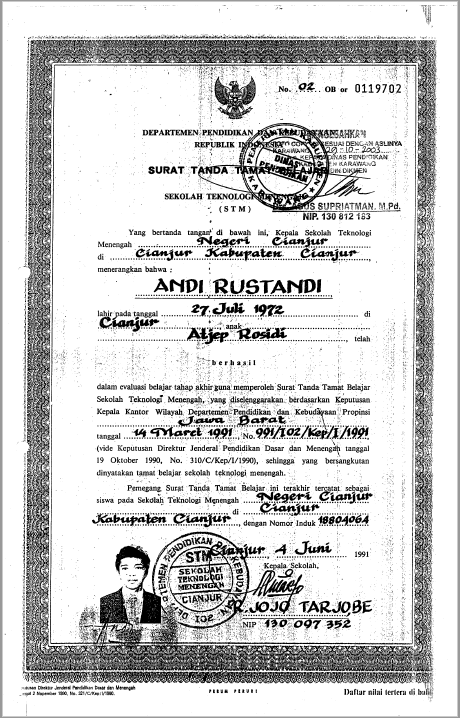 No. 02 OB or 0119702
DEPARTEMEN PENDIDIKAN DAN KEBUDAYAAN
REPUBLIK INDONESIA
SESUAI DENGAN ASLINYA
KARAWANG 29-10-2003
DINAS PENDIDIKAN
KARAWANG
DIKMEN
SURAT TANDA TAMAT BELAJAR
DINAS PENDIDIKAN
SEKOLAH TEKNOLOGI MENENGAH
(STM)
AGUS SUPRIATMAN. M.Pd.
NIP. 130 812 153
Yang bertanda tangan di bawah ini, Kepala Sekolah Teknologi
Menengah Negeri Cianjur
di Cianjur Kabupaten Cianjur
menerangkan bahwa :
ANDI RUSTANDI
lahir pada tanggal 27 Juli 1972 di
Cianjur anak
Atjep Rosidi, telah
berhasil
dalam evaluasi belajar tahap akhir guna memperoleh Surat Tanda Tamat Belajar
Sekolah Teknologi Menengah, yang diselenggarakan berdasarkan Keputusan
Kepala Kantor Wilayah Departemen Pendidikan dan Kebudayaan Propinsi
Jawa Barat
tanggal 14 Maret 1991 No. 991/I02/Kep/I/1991
(vide Keputusan Direktur Jenderal Pendidikan Dasar dan Menengah tanggal
19 Oktober 1990, No. 310/C/Kep/I/1990), sehingga yang bersangkutan
dinyatakan tamat belajar sekolah teknologi menengah.
Pemegang Surat Tanda Tamat Belajar ini terakhir tercatat sebagai
siswa pada Sekolah Teknologi Menengah Negeri Cianjur
di Cianjur
Kabupaten Cianjur, dengan Nomor Induk 18804064
Cianjur 4 Juni 1991
Kepala Sekolah,
DEPARTEMEN PENDIDIKAN DAN KEBUDAYAAN
STM
SEKOLAH
TEKNOLOGI
MENENGAH
CIANJUR
R. JOJO TARJOBE
NIP 130 097 352
Direktur Jenderal Pendidikan Dasar dan Menengah
2 Nopember 1990, No. 321/C/Kep/I/1990.
PERUM PERURI
Daftar nilai tertera di